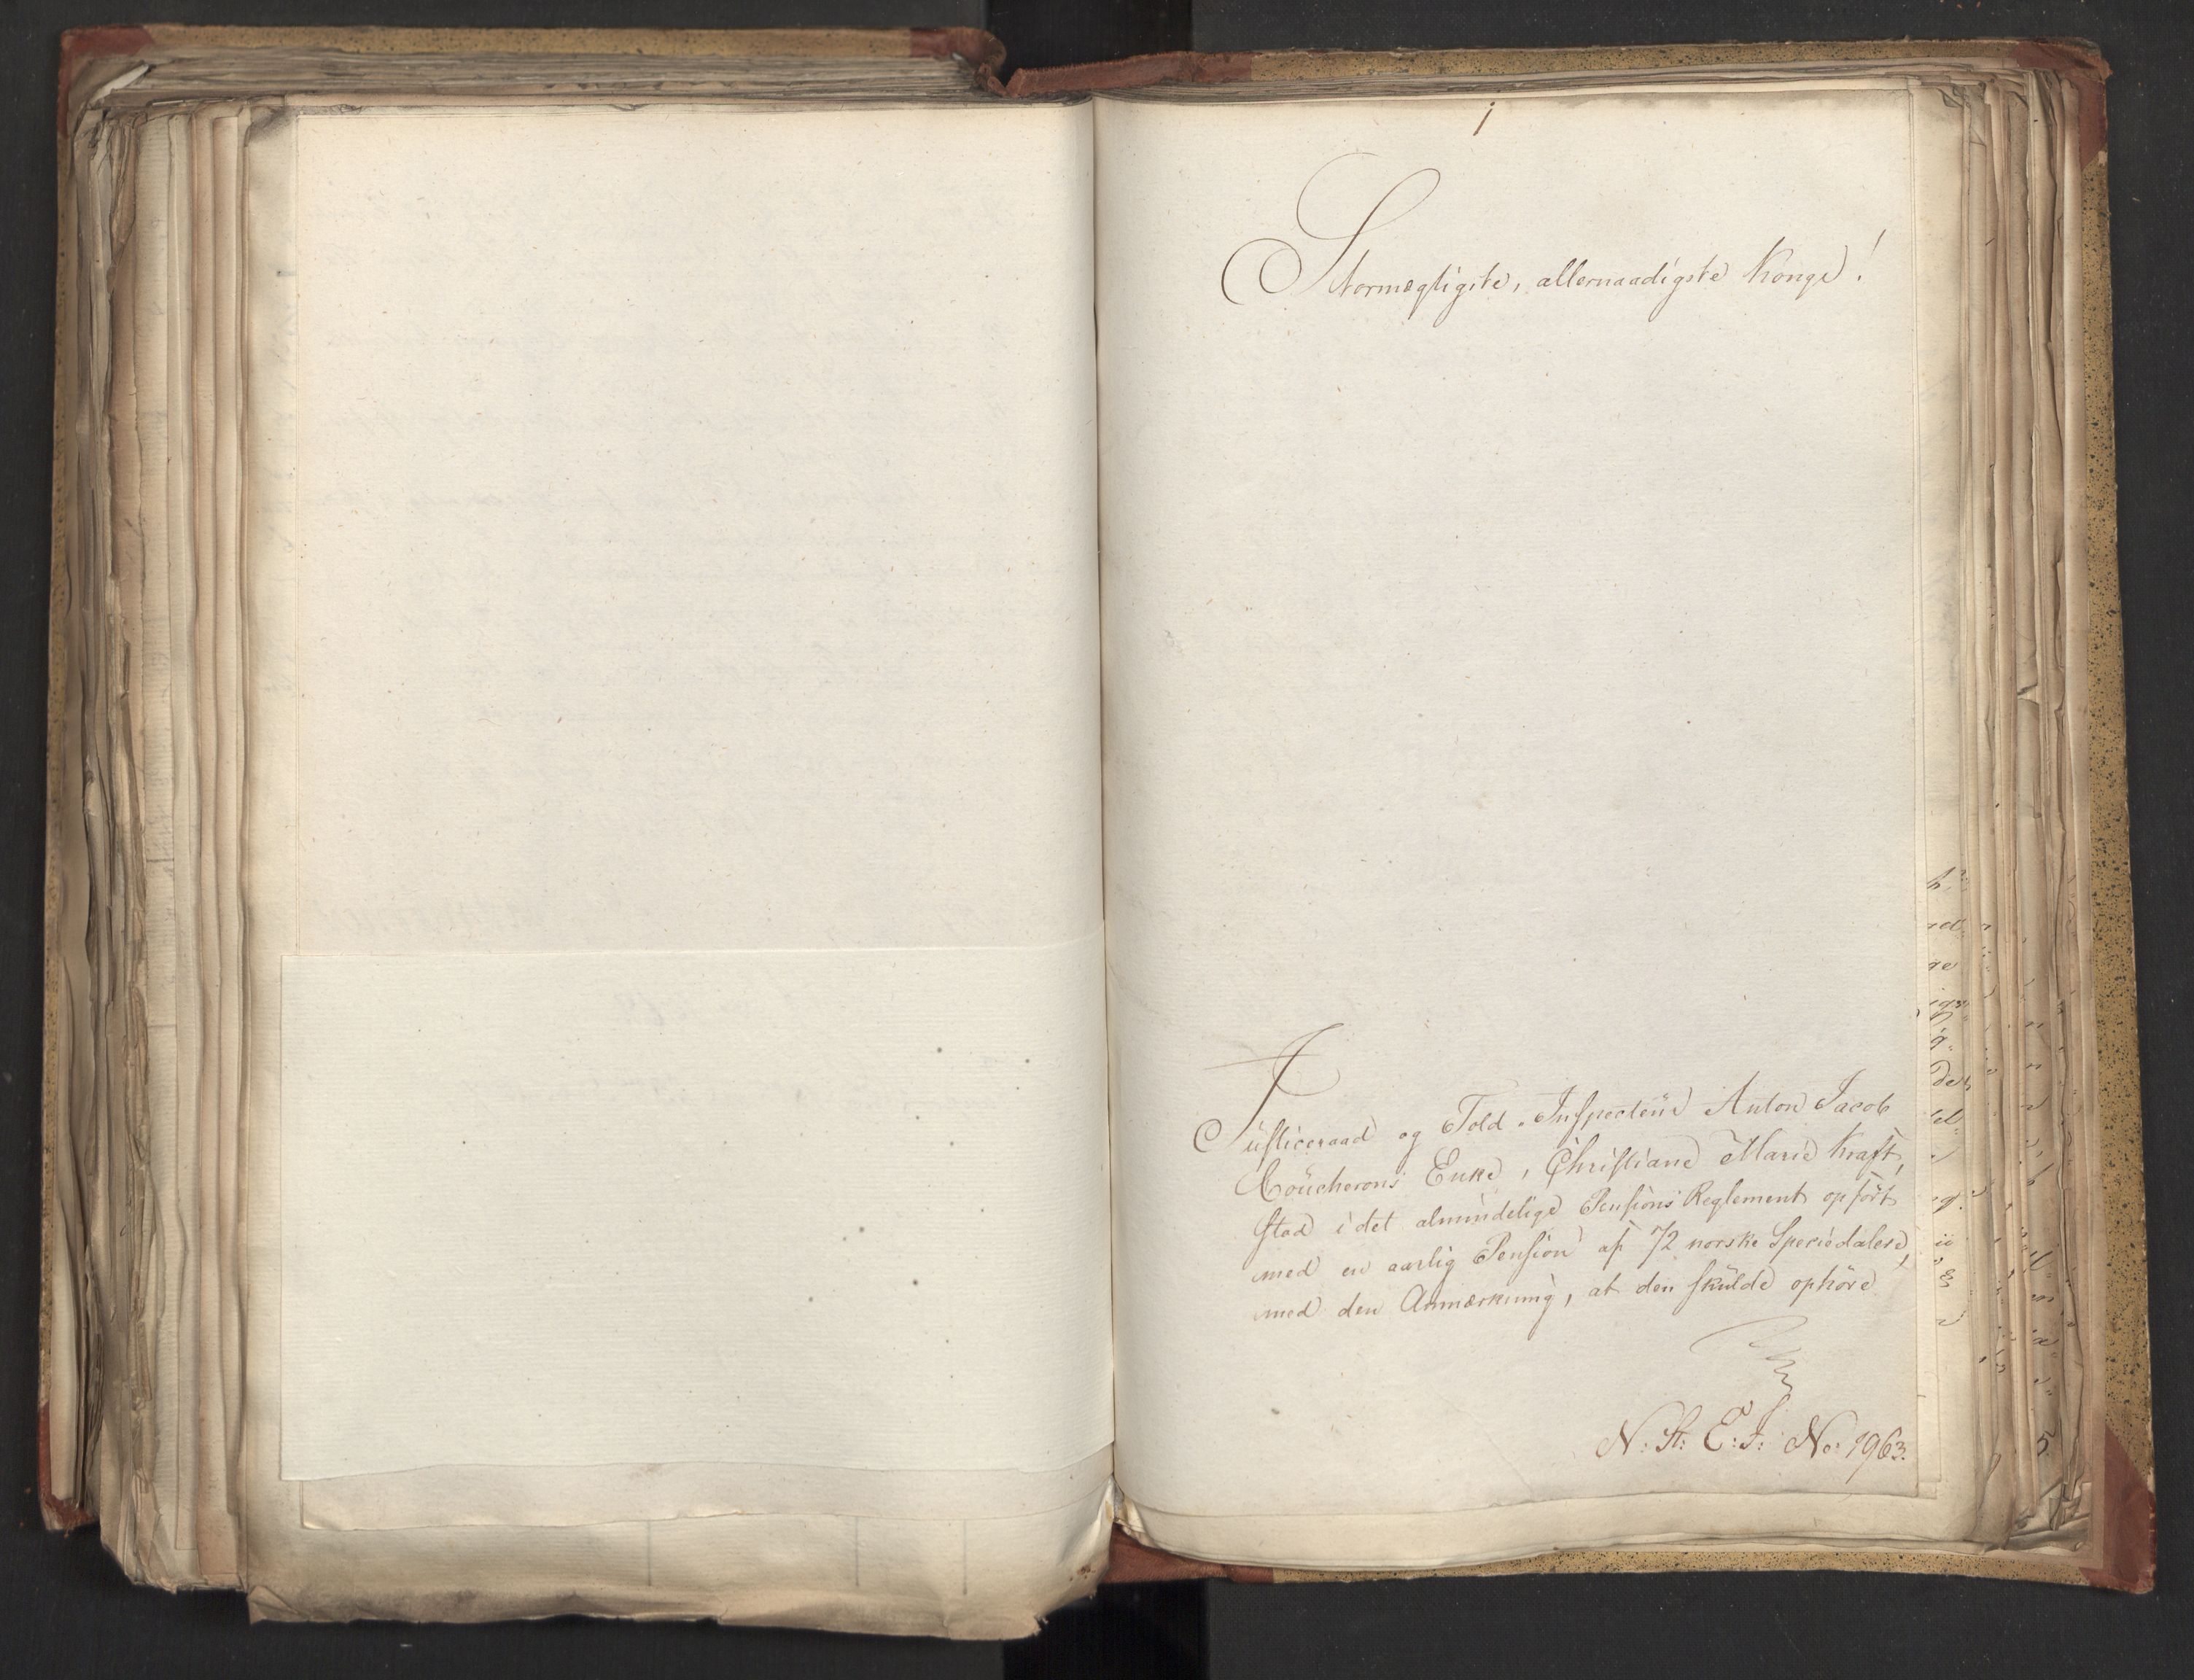 1
Stormægtigste, allernaadigste Konge!
Justiceraad og Told-Inspecteur Anton Jacob
Coucherons Enke, Christiane Marie Kraft,
stod i det almindelige Pensions Reglement opført
med en aarlig Pension af 72 norske Speciedalere,
med den Anmærkning, at den skulde ophøre
N: St: E: I: No: 1963.